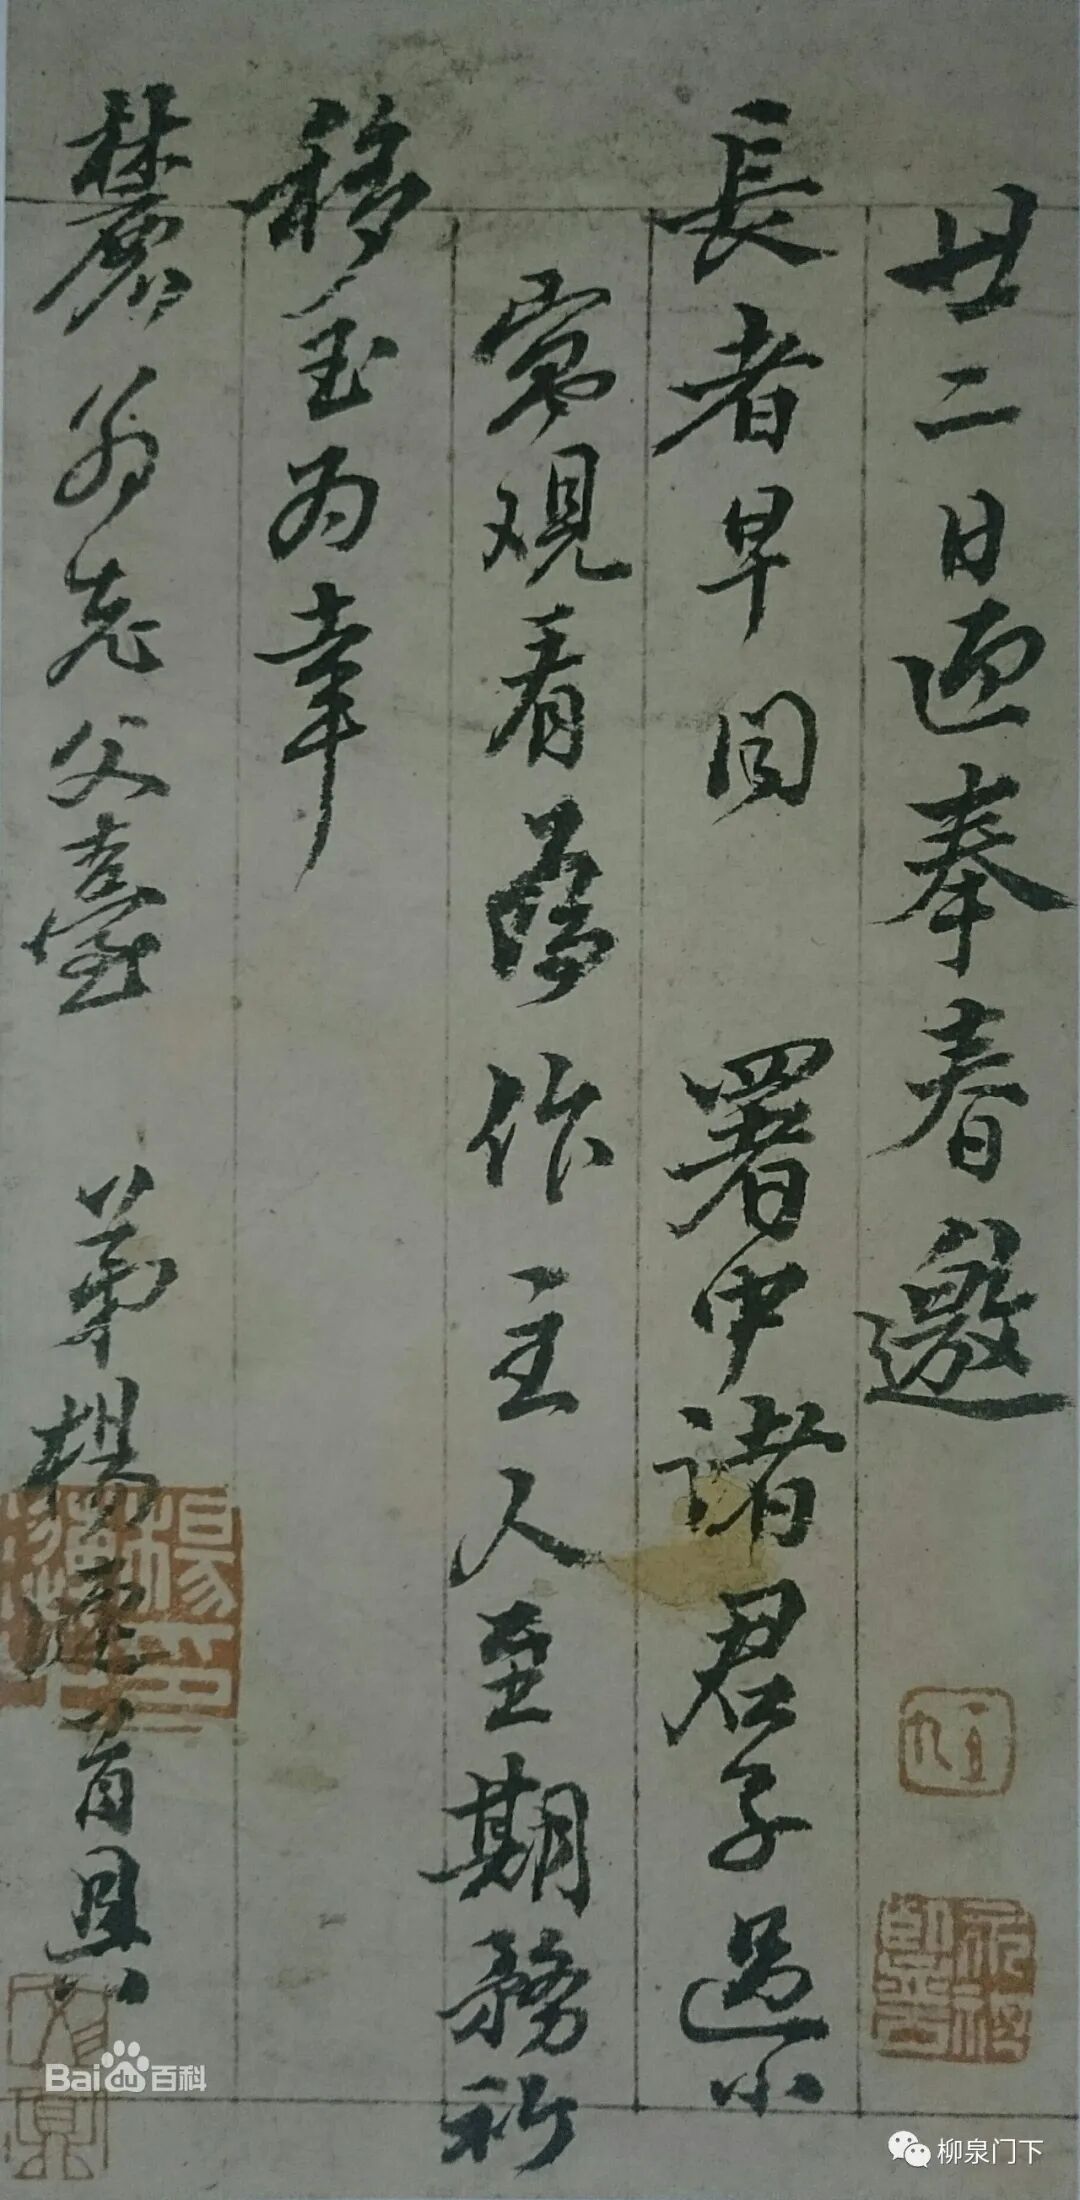 廿二日奉春邀
長者早 署中諸君子過小
寓观看作主人至期務祈
移玉为幸
麓翁老父臺 弟楊漣首具
Bai du 百科
柳泉门下